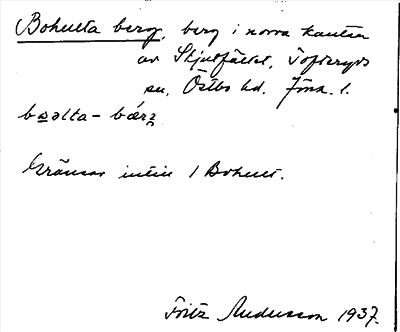 Bohulta berg, berg i norra kanten
av Skjutfältet, Tofteryds
sn, Östbo hd. Jönk. l.
bɷəlta - bǽrʒ
Gränsar intill 1 Bohult.
Fritz Andersson 1937.